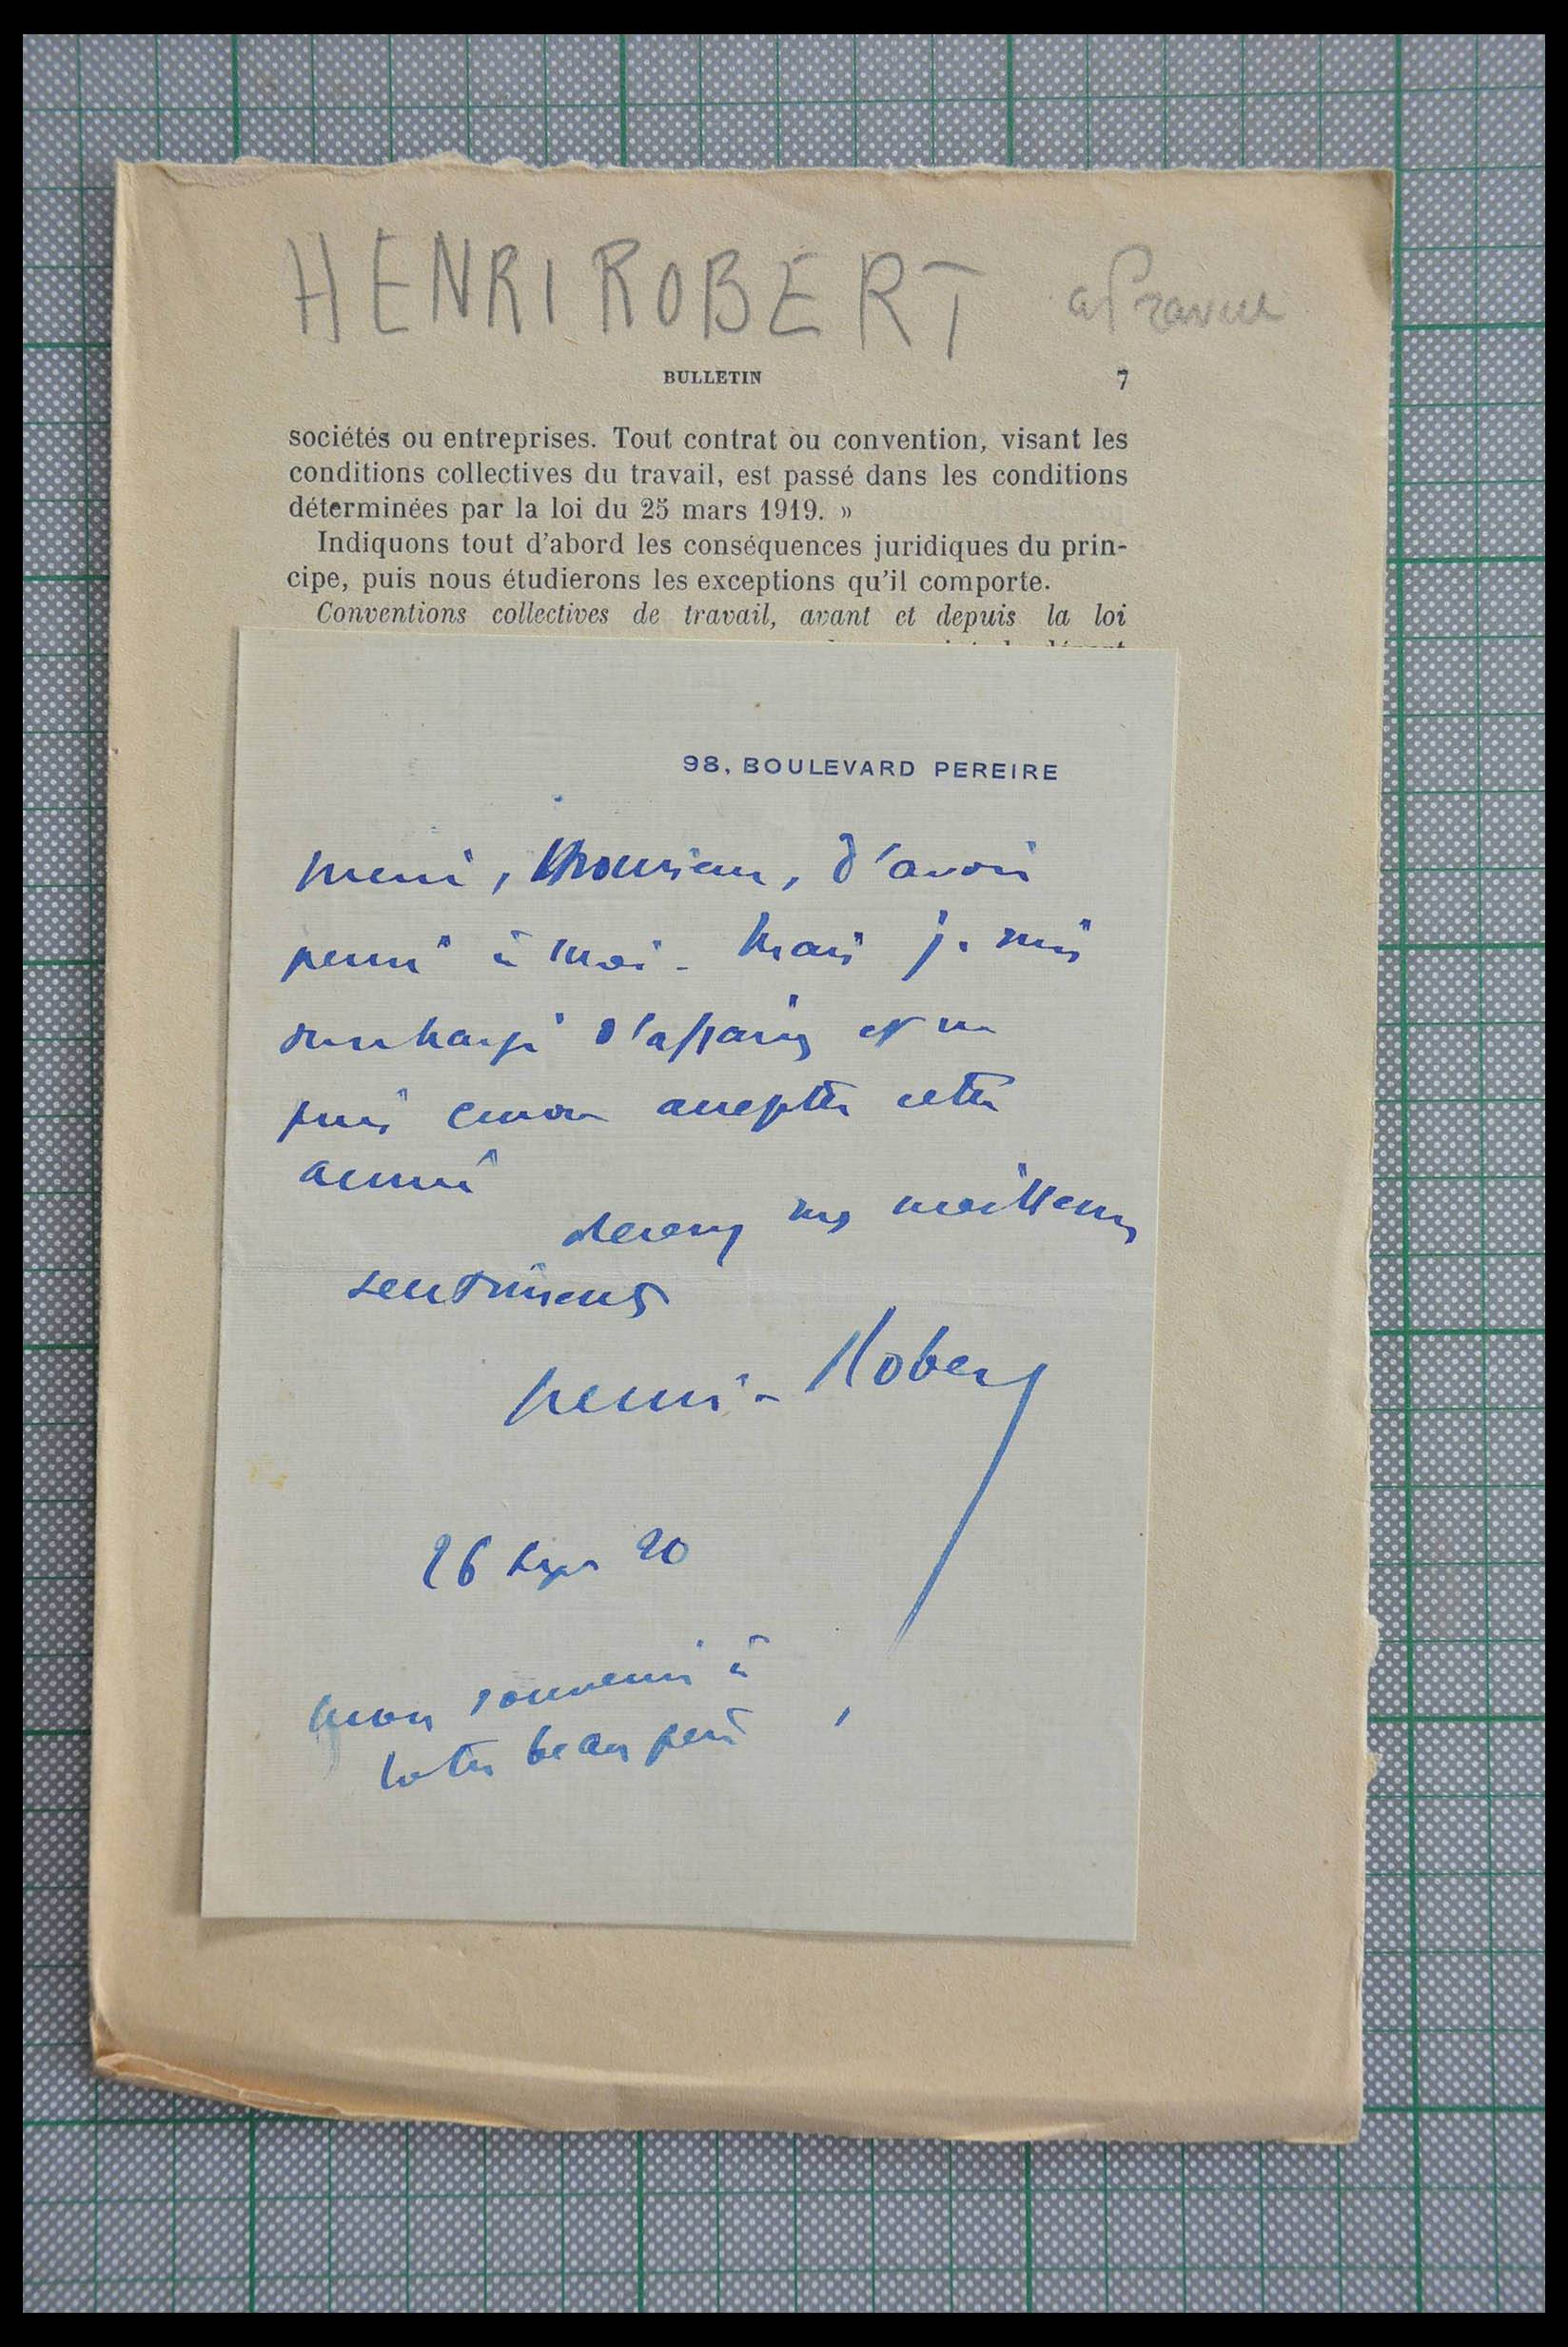 HENRI ROBERT
BULLETIN 7
sociétés ou entreprises. Tout contrat ou convention, visant les
conditions collectives du travail, est passé dans les conditions
déterminées par la loi du 25 mars 1919. »
Indiquons tout d'abord les conséquences juridiques du prin-
cipe, puis nous étudierons les exceptions qu'il comporte.
Conventions collectives de travail, avant et depuis la loi
98, BOULEVARD PEREIRE
Merci, Monsieur, d'avoir
pensé à moi. Mais je suis
surchargé d'affaires et ne
puis accepter cette
année
mes meilleurs
sentiments
Henri-Robert
26 Sept 20
Mon souvenir à
votre beau père